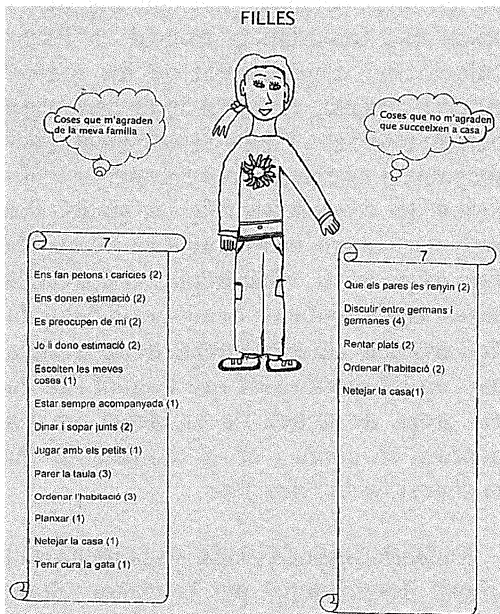 FILLES
Coses que m'agraden
de la meva família
Coses que no m'agraden
que succeeixen a casa
7
Ens fan petons i carícies (2)
Ens donen estimació (2)
Es preocupen de mi (2)
Jo li dono estimació (2)
Escolten les meves
coses (1)
Estar sempre acompanyada (1)
Dinar i sopar junts (2)
Jugar amb els petits (1)
Parer la taula (3)
Ordenar l'habitació (3)
Planxar (1)
Netejar la casa (1)
Tenir cura la gata (1)
7
Que els pares les renyin (2)
Discutir entre germans i
germanes (4)
Rentar plats (2)
Ordenar l'habitació (2)
Netejar la casa(1)